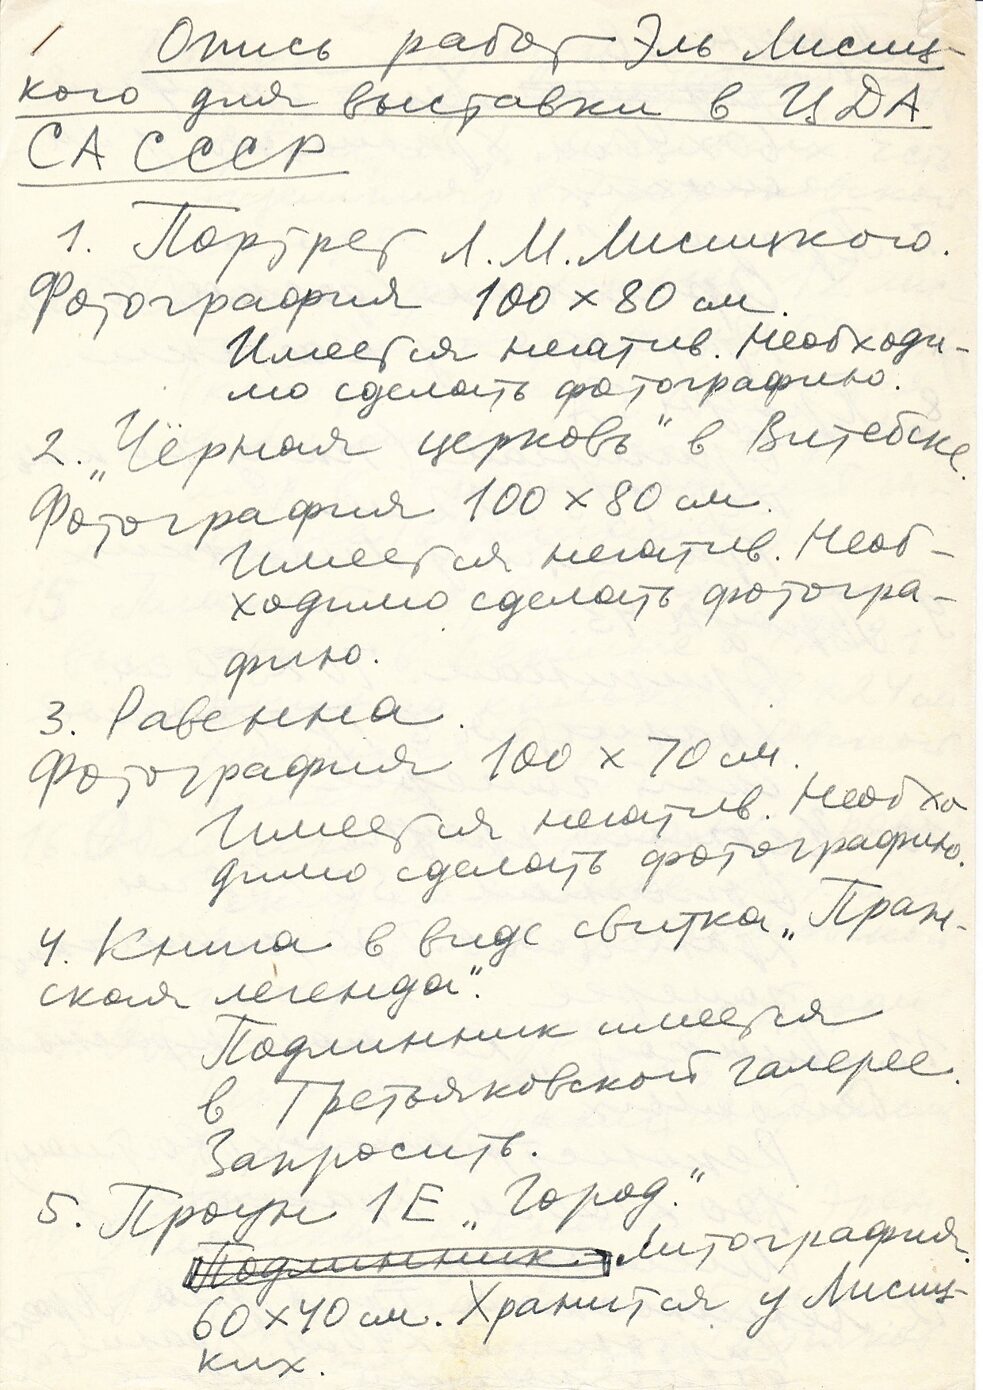 Опись работ Эль Лисиц-
кого для выставки в ЦДА
СА СССР
1. Портрет Л.М. Лисицкого.
Фотография 100 х 80 см.
Имеется негатив. Необходи-
мо сделать фотографию.
2. „Чёрная церковь" в Витебске.
Фотография 100 х 80 см.
Имеется негатив. Необ-
ходимо сделать фотогра-
фию.
3. Равенна.
Фотография 100 х 70 см.
Имеется негатив. Необхо
димо сделать фотографию.
4. Книга в виде свитка „Праж-
ская легенда".
Подлинник имеется
в Третьяковской галерее.
Запросить.
5. Проун 1Е „Город."
Подлинник. Литография.
60х40 см. Хранится у Лисиц-
ких.